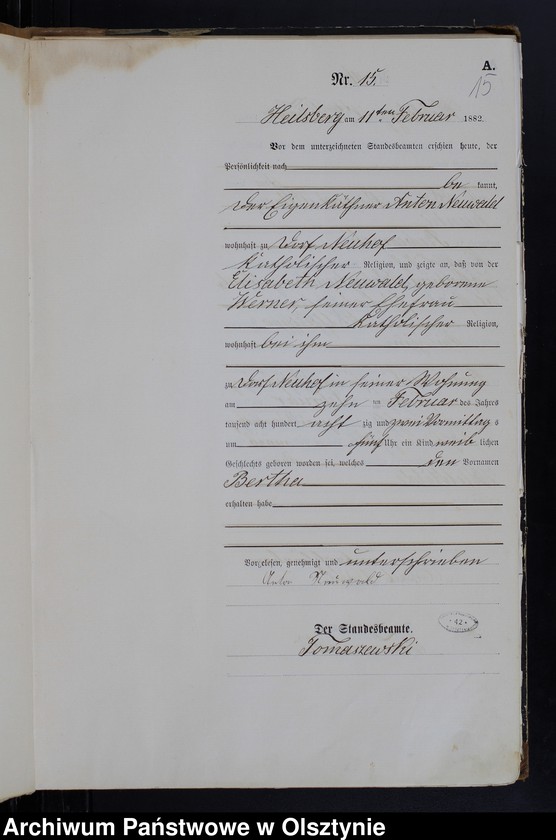 A.
Nr. 15.
15
Heilsberg am 11ten Februar 1882.
Vor dem unterzeichneten Standesbeamten erschien heute, der
Persönlichkeit nach
be kannt,
der Eigenkäthner Anton Neuwald
wohnhaft zu Dorf Neuhof
Katholischer Religion, und zeigte an, daß von der
Elisabeth Neuwald, geborene
Werner, seiner Ehefrau
Katholischer Religion,
wohnhaft bei ihm
zu Dorf Neuhof in seiner Wohnung
am zehn ten Februar des Jahres
tausend acht hundert acht zig und zwei Vormittag s
um fünf Uhr ein Kind weib lichen
Geschlechts geboren worden sei, welches den Vornamen
Bertha
erhalten habe
Vorgelesen, genehmigt und unterschrieben
Anton Neuwald
Der Standesbeamte.
Tomaszewski
Archiwum Państwowe w Olsztynie